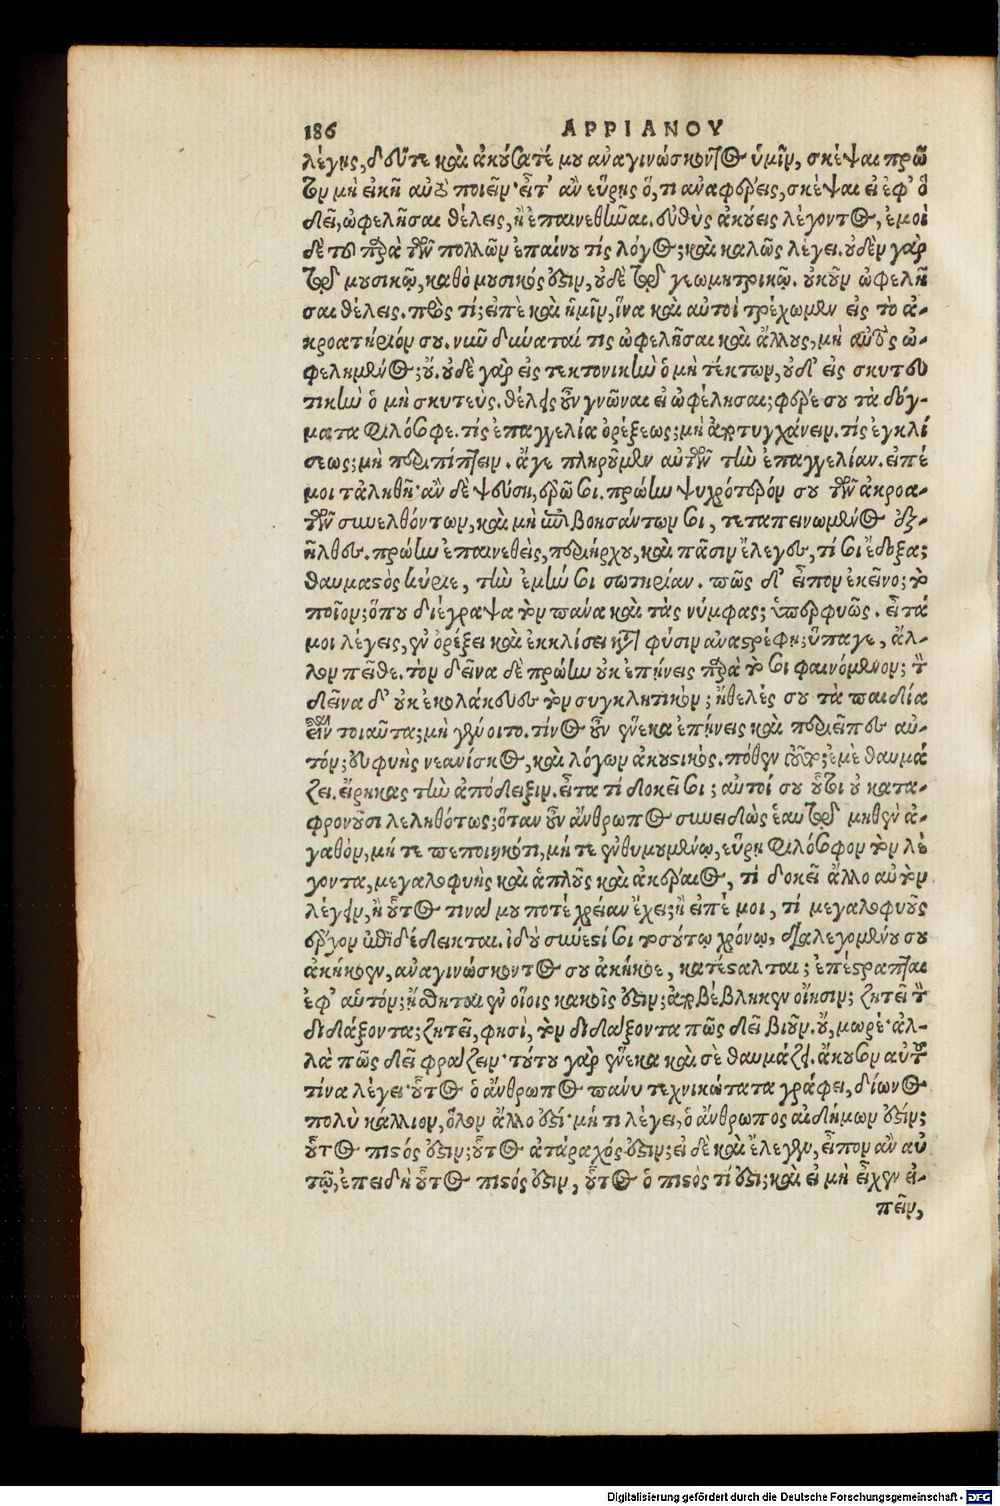 186 ΑΡΡΙΑΝΟΥ
λέγῃς, δεῦτε καὶ ἀκούσατέ μου ἀναγινώσκοντος ὑμῖν, σκέψαι πρῶ
τον μὴ εἰκῆ αὐτὸ ποιεῖν· εἶτ' ἂν εὕρῃς ὅ, τι ἀναφέρεις, σκέψαι εἰ ἐφ' ὃ
δεῖ, ὠφελῆσαι θέλεις, ἢ ἐπαινεθῆναι. εὐθὺς ἀκούεις λέγοντος, ἐμοὶ
δὲ τοῦ παρὰ τῶν πολλῶν ἐπαίνου τίς λόγος; καὶ καλῶς λέγει. οὐδὲν γὰρ
τῷ μουσικῷ, καθὸ μουσικός ἐστιν, οὐδὲ τῷ γεωμητρικῷ. οὐκοῦν ὠφελῆ
σαι θέλεις. πρὸς τί; εἰπὲ καὶ ἡμῖν, ἵνα καὶ αὐτοὶ τρέχωμεν εἰς τὸ ἀ-
κροατήριόν σου. νῦν δύναταί τις ὠφελῆσαι καὶ ἄλλους, μὴ αὐτὸς ὠ-
φελημένος; οὔ. οὐδὲ γὰρ εἰς τεκτονικὴν ὁ μὴ τέκτων, οὐδ' εἰς σκυτευ
τικὴν ὁ μὴ σκυτεύς. θέλεις οὖν γνῶναι εἰ ὠφέλησαι; φέρε σου τὰ δόγ-
ματα φιλόσοφε. τίς ἐπαγγελία ὀρέξεως; μὴ ἀποτυγχάνειν. τίς ἐγκλί
σεως; μὴ περιπίπτειν. ἄγε πληροῦμεν αὐτῶν τὴν ἐπαγγελίαν. εἰπέ
μοι τἀληθῆ· ἂν δὲ ψεύσῃ, ἐρῶ σοι. πρώην ψυχρότερόν σου τῶν ἀκροα-
τῶν συνελθόντων, καὶ μὴ ἐπιβοησάντων σοι, τεταπεινωμένος ἐξ-
ῆλθες. πρώην ἐπαινεθεὶς, περιήρχου, καὶ πᾶσιν ἔλεγες, τί σοι ἔδοξα;
θαυμαστὸς κύριε, τὴν ἐμήν σοι σωτηρίαν. πῶς δ' εἶπον ἐκεῖνο; τὸ
ποῖον; ὅπου διέγραψα τὸν πάνα καὶ τὰς νύμφας; ὑπερφυῶς. εἶτά
μοι λέγεις, ἐν ὀρέξει καὶ ἐκκλίσει κατὰ φύσιν ἀναστρέφῃ; ὕπαγε, ἄλ-
λον πεῖθε. τὸν δεῖνα δὲ πρώην οὐκ ἐπῄνεις παρὰ τό σοι φαινόμενον; τὸν
δεῖνα δ' οὐκ ἐκολάκευες τὸν συγκλητικὸν; ἤθελές σου τὰ παιδία
εἶναι τοιαῦτα; μὴ γένοιτο. τίνος οὖν ἕνεκα ἐπῄνεις καὶ περιεῖπες αὐ-
τόν; εὐφυὴς νεανίσκος, καὶ λόγων ἀκουστικός. πόθεν τοῦτο; ἐμὲ θαυμά
ζει. εἴρηκας τὴν ἀπόδειξιν. εἶτα τί δοκεῖ σοι; αὐτοί σου οὗτοι οὐ κατα-
φρονοῦσι λεληθότως; ὅταν οὖν ἄνθρωπος συνειδὼς ἑαυτῷ μηθὲν ἀ-
γαθὸν, μή τε πεποιηκότι, μή τε ἐνθυμουμένῳ, εὕρῃ φιλόσοφον τὸν λέ
γοντα, μεγαλοφυὴς καὶ ἁπλοῦς καὶ ἀκέραιος, τί δοκεῖ ἄλλο αὐτὸν
λέγειν, ἢ οὗτος τινά μου ποτὲ χρείαν ἔχει; ἢ εἰπέ μοι, τί μεγαλοφυοῦς
ἔργον ἐπιδέδεικται. ἰδοὺ σύνεστί σοι τοσούτῳ χρόνῳ, διαλεγομένου σου
ἀκήκοεν, ἀναγινώσκοντος σου ἀκήκοε, κατέσταλται; ἐπέστραπται
ἐφ' αὑτόν; ᾔσθηται ἐν οἵοις κακοῖς ἐστιν; ἀποβέβληκεν οἴησιν; ζητεῖ τὸν
διδάξοντα; ζητεῖ, φησὶ, τὸν διδάξοντα πῶς δεῖ βιοῦν. οὔ, μωρέ· ἀλ-
λὰ πῶς δεῖ φράζειν· τούτου γὰρ ἕνεκα καὶ σὲ θαυμάζει. ἄκουσον αὐτοῦ
τίνα λέγει· οὗτος ὁ ἄνθρωπος πάνυ τεχνικώτατα γράφει, δίωνος
πολὺ κάλλιον, ὅλον ἄλλο ἐστί· μή τι λέγει, ὁ ἄνθρωπος αἰδήμων ἐστίν;
οὗτος πιστός ἐστιν; οὗτος ἀτάραχός ἐστιν; εἰ δὲ καὶ ἔλεγεν, εἶπον ἂν αὐ
τῷ, ἐπειδὴ οὗτος πιστός ἐστιν, οὗτος ὁ πιστὸς τί ἐστι; καὶ εἰ μὴ εἶχεν εἰ-
πεῖν,
Digitalisierung gefördert durch die Deutsche Forschungsgemeinschaft - DFG